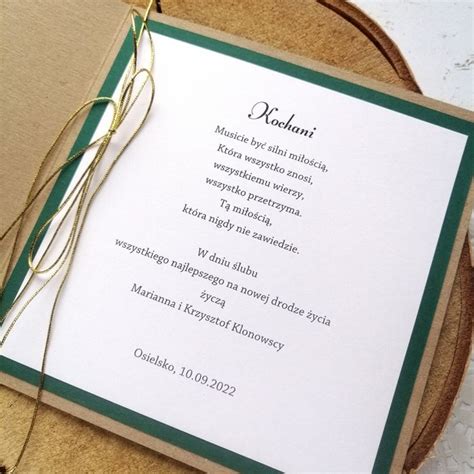 Kochani
Musicie być silni miłością,
Która wszystko znosi,
wszystkiemu wierzy,
wszystko przetrzyma.
Tą miłością,
która nigdy nie zawiedzie.
W dniu ślubu
wszystkiego najlepszego na nowej drodze życia
życzą
Marianna i Krzysztof Klonowscy
Osielsko, 10.09.2022